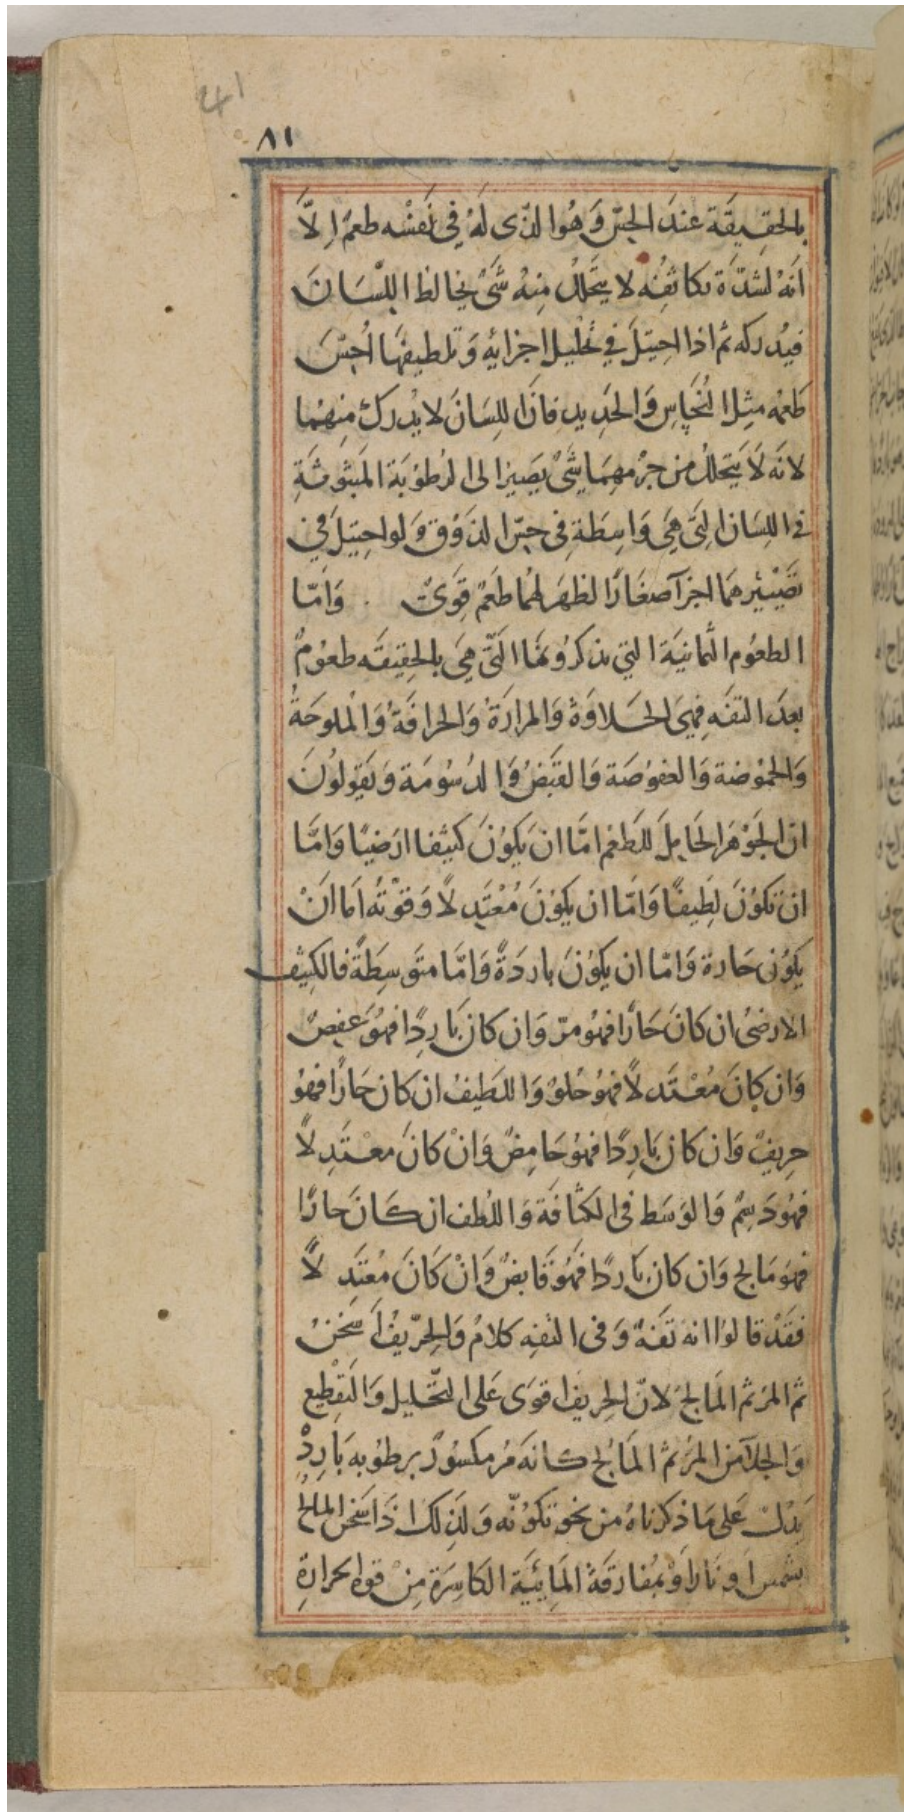 ٨١
بالحقيقة عند الحِسّ وَهُوَ الذّى لَهُ فِى نَفسْه طعم اِلاّ
انَه لشدّة تكاثفُه لا يتَحلل مِنهُ شَىْ يخالط اللّسَانَ
فيُدركه ثم اذا احِتيَل فى تحليل اجزايُه وَتلطيفهَا اُحِسّ
طعمه مثِل النُحاسِ وَالحَديد فانَ اللِسَانَ لا يُدرك مِنهُما
لانَه لاَ يَتحَلل من جرْمهمَا شَىْ يصَير الى الرُطوُبَة المَبثوُثةِ
فى اللِسَان التِىَ هىَ وَاسِطَة فى حِسّ الذَوُق وَلو احِتيلَ فى
تصَييْرهمَا اجزآ صغَارًا لظهَر لهُما طعَم قِوَىٌ . وَامّا
الطعوُم الثمانيَة التى يذكرُونهَا التَّى هىَ بالحقِيقَه طعوُمٌ
بعدَ التفَه فهىَ الحَلاوَة وَالمرارَة وَالحرافَةُ وَالملوحَةُ
وَالحموُضة وَالعفوُصَة وَالقبَضُ وَالدُسُومَة وَيقوُلوُنَ
ان الجَوْهَر الحَامِلَ للطَعم امَّا ان يكوُنَ كثيفا ارَضيًا وَامَّا
ان تكوُنَ لطِيفًا وَامّا ان يكوُنَ مُعْتَدلاً وَقوّتهُ اما اَنْ
يكوُن حَارة وَامّا ان يكوُنَ باردَةً وَامَّا متوَسِطَةً فالكثِيف
الارضىُ ان كانَ حَارًا فهوُ مرّ وَان كان بَارِدًا فهوَ عفِصٌ
وَان كانَ مُعْتَدلاً فهوُ حُلوٌ وَاللطَيفُ ان كان حَارًا فهوُ
حِريفٌ وَان كان بَارِدًا فهوُ حَامِضٌ وَانْ كانَ معْتَدِلاً
فهوُ دَسِمٌ وَالوَسَط فى الكثافَة وَاللُطف ان كَانَ حارًا
فهوَ مَالح وَان كان بَاردًا فهَوُ قَابضٌ وَانْ كَانَ مُعتَدِلاً
فقَدْ قالوُا انه تفَهٌ وَفى التفِه كلامُ وَالحِرّيفُ اَسَخنُ
ثم المُر ثم المَالح لانّ الحِريف اقوَى عَلى التحَليل وَالتقَطيع
وَالجلآ من المُر ثمّ المَالحُ كانَه مُر مكسُورٌ برطوُبه بَاردْه
يَدُلُ عَلى مَا ذكرناهُ من نحو تكوُنّه وَلذِلك اذَا سَخنَ المالحُ
بشمس اَو نَار اَوْ بمُفارقَة المَائيَّة الكاسِرَة مِنْ قوة الحرارةِ